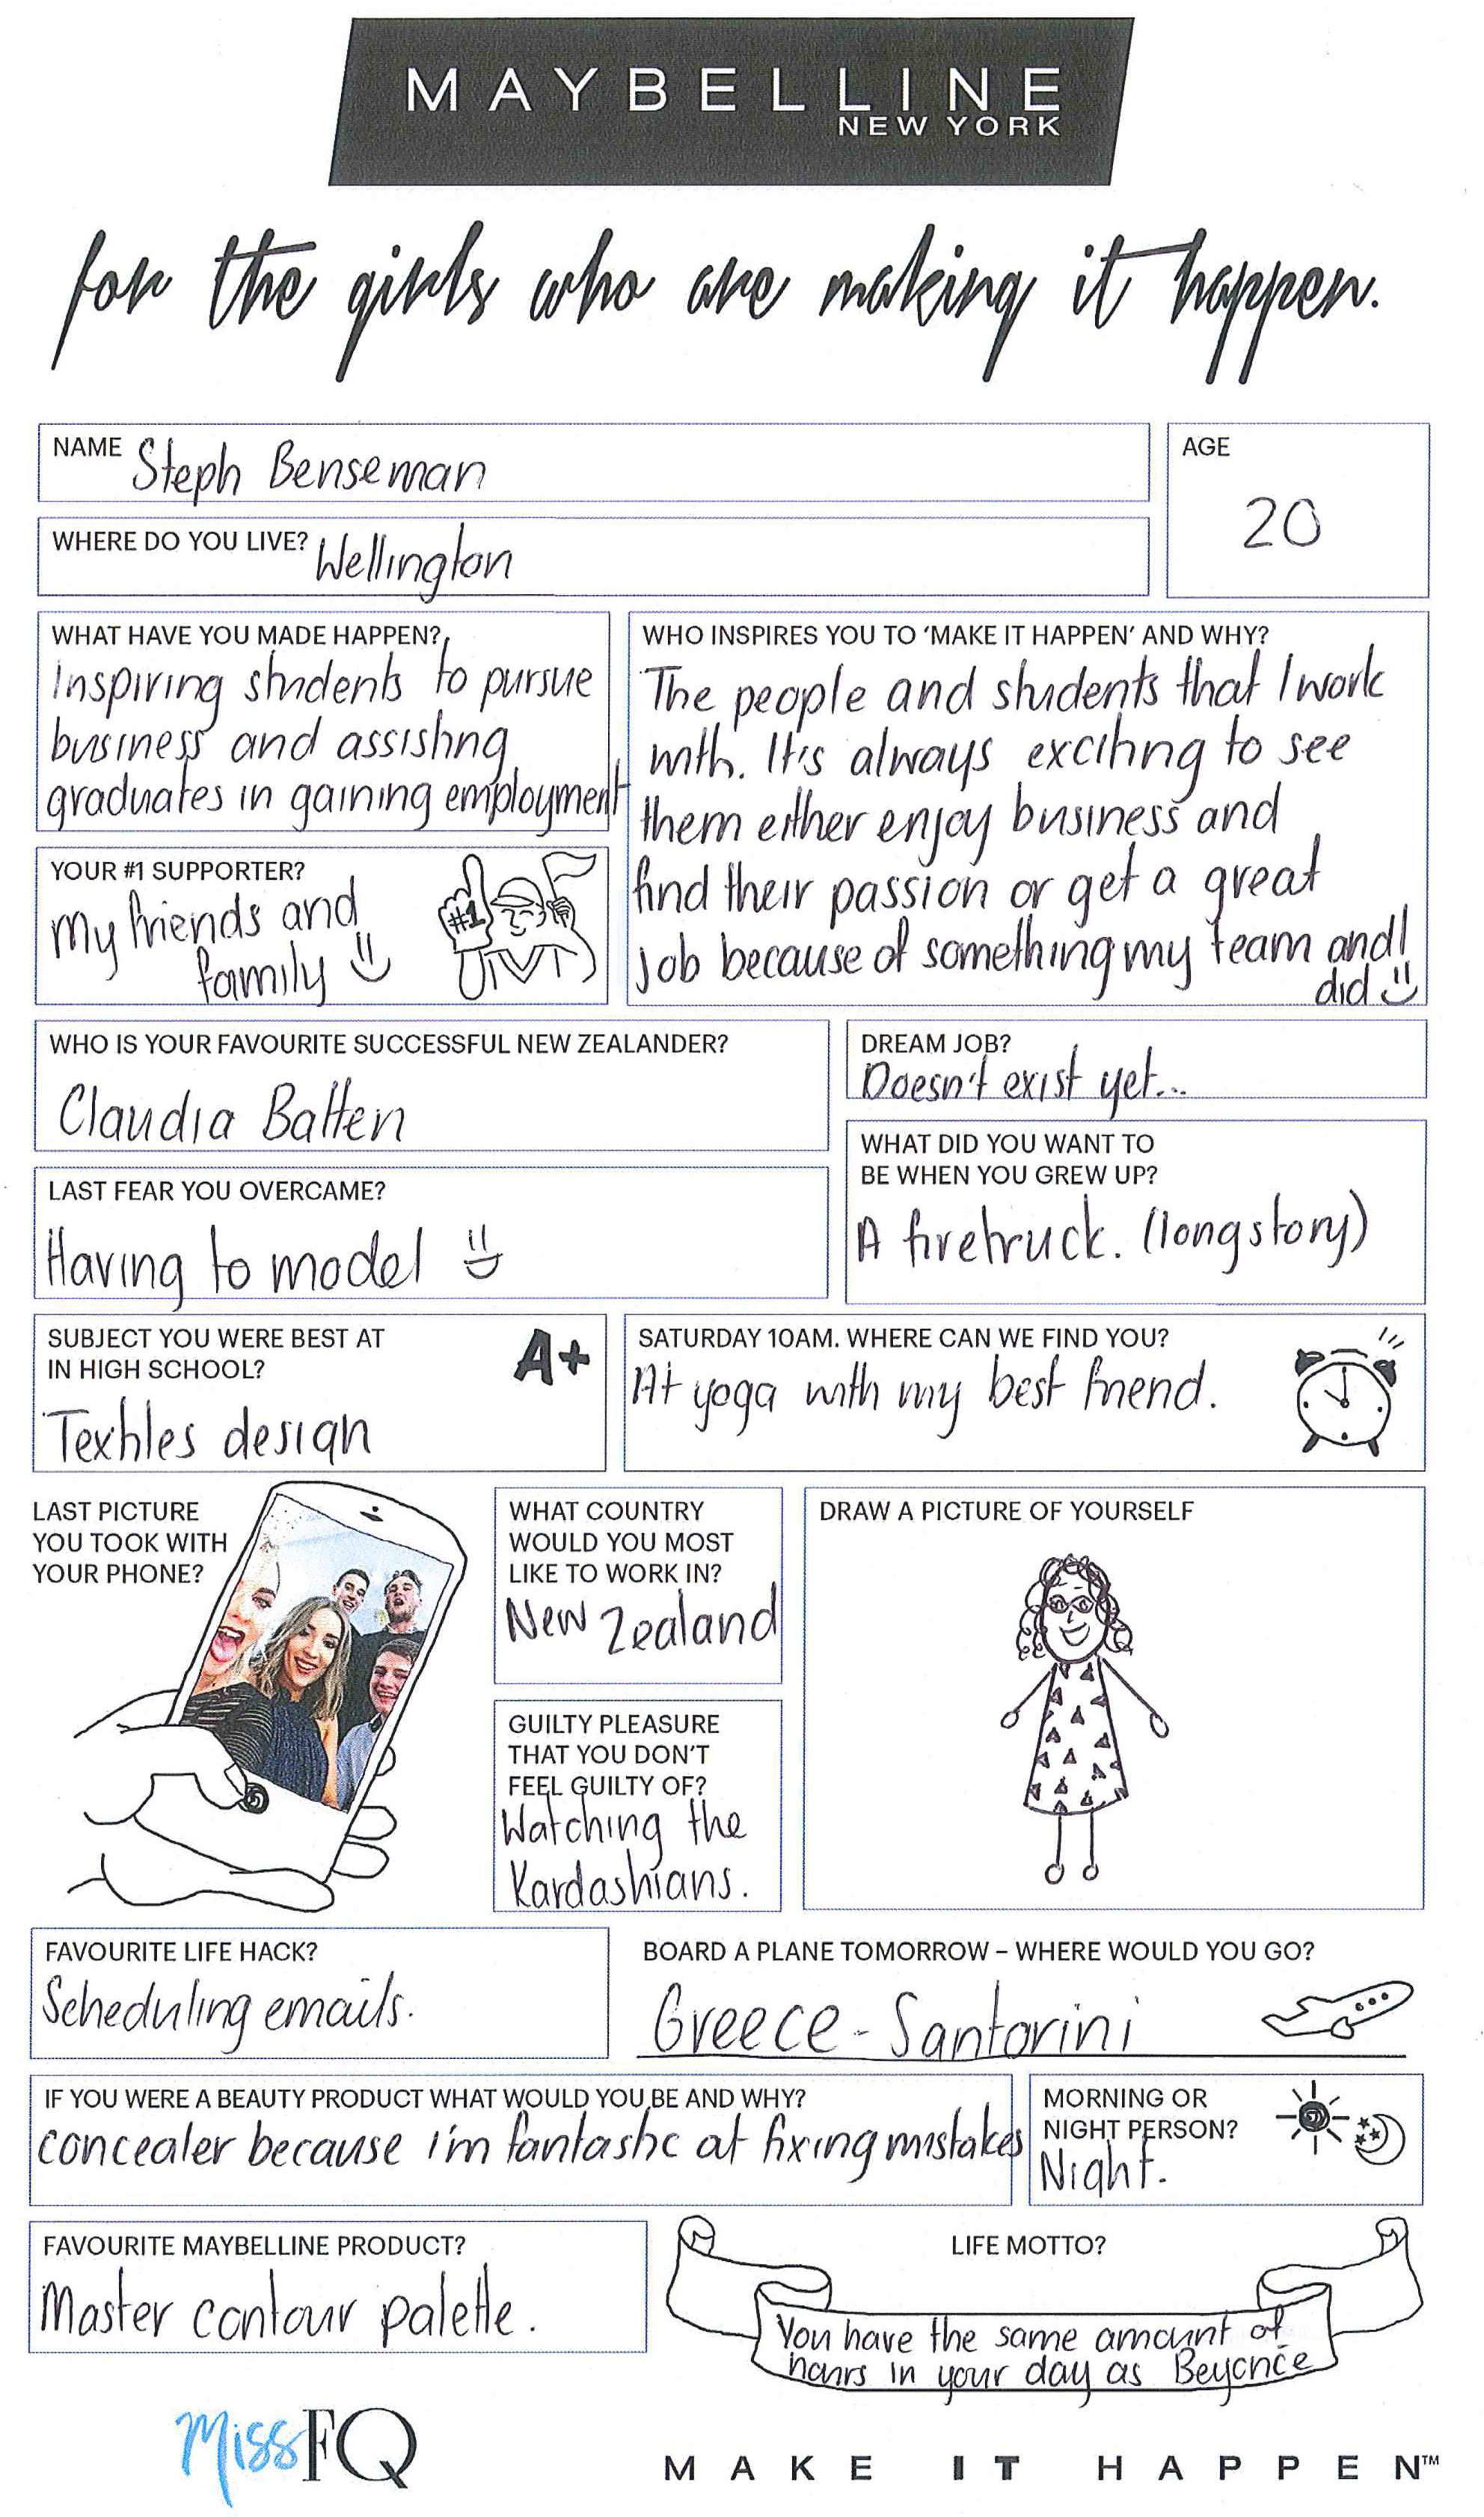 MAYBELLINE
NEW YORK
for the girls who are making it happen.
NAME Steph Benseman
AGE
20
WHERE DO YOU LIVE? Wellington
WHAT HAVE YOU MADE HAPPEN?
Inspiring students to pursue
business and assisting
graduates in gaining employment
WHO INSPIRES YOU TO ‘MAKE IT HAPPEN’ AND WHY?
The people and students that I work
with. It's always exciting to see
them either enjoy business and
find their passion or get a great
job because of something my team and I
did
YOUR #1 SUPPORTER?
My friends and
family
#1
WHO IS YOUR FAVOURITE SUCCESSFUL NEW ZEALANDER?
Claudia Batten
DREAM JOB?
Doesn't exist yet...
WHAT DID YOU WANT TO
BE WHEN YOU GREW UP?
A firetruck. (long story)
LAST FEAR YOU OVERCAME?
Having to model
SUBJECT YOU WERE BEST AT
IN HIGH SCHOOL?
A+
Textiles design
SATURDAY 10AM. WHERE CAN WE FIND YOU?
At yoga with my best friend.
LAST PICTURE
YOU TOOK WITH
YOUR PHONE?
WHAT COUNTRY
WOULD YOU MOST
LIKE TO WORK IN?
New Zealand
GUILTY PLEASURE
THAT YOU DON'T
FEEL GUILTY OF?
Watching the
Kardashians.
DRAW A PICTURE OF YOURSELF
FAVOURITE LIFE HACK?
Scheduling emails.
BOARD A PLANE TOMORROW – WHERE WOULD YOU GO?
Greece - Santorini
IF YOU WERE A BEAUTY PRODUCT WHAT WOULD YOU BE AND WHY?
concealer because i'm fantastic at fixing mistakes
MORNING OR
NIGHT PERSON?
Night.
FAVOURITE MAYBELLINE PRODUCT?
Master contour palette.
LIFE MOTTO?
You have the same amount of
hours in your day as Beyonce
Miss FQ
MAKE IT HAPPEN™